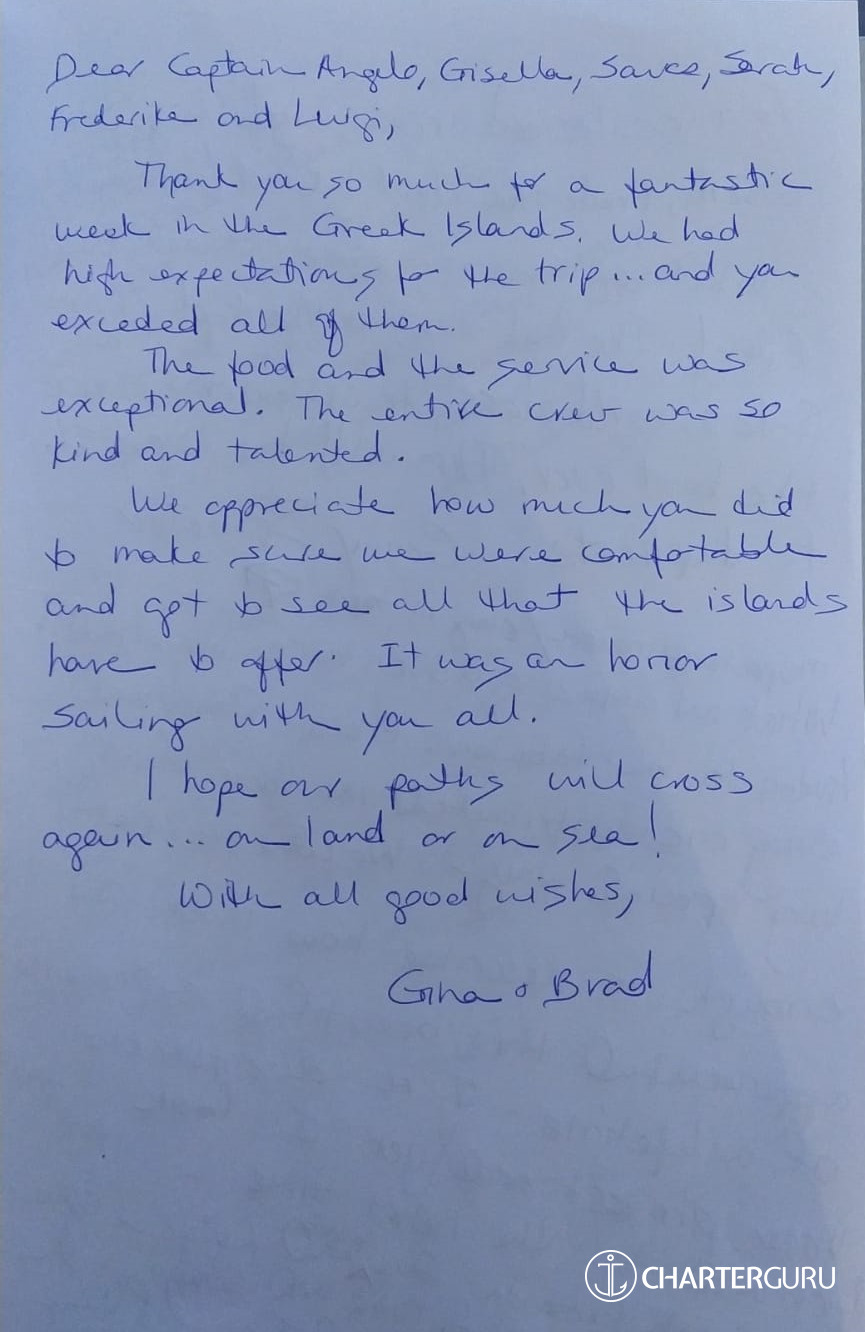 Dear Captain Angelo, Gisella, Sarah,
Frederike and Luigi,
Thank you so much for a fantastic
week in the Greek Islands. We had
high expectations for the trip...and you
exceded all of them.
The food and the service was
exceptional. The entire crew was so
kind and talented.
We appreciate how much you did
to make sure we were comfortable
and got to see all that the islands
have to offer. It was an honor
sailing with you all.
I hope our paths will cross
again... on land or on sea!
With all good wishes,
Gina & Brad
CHARTERGURU